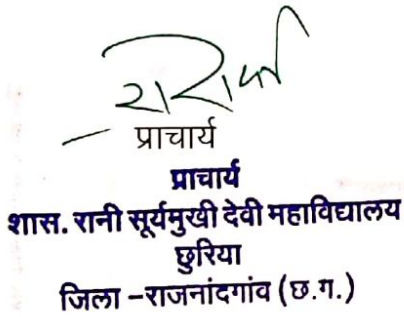 प्राचार्य
प्राचार्य
शास. रानी सूर्यमुखी देवी महाविद्यालय
छुरिया
जिला –राजनांदगांव (छ.ग.)